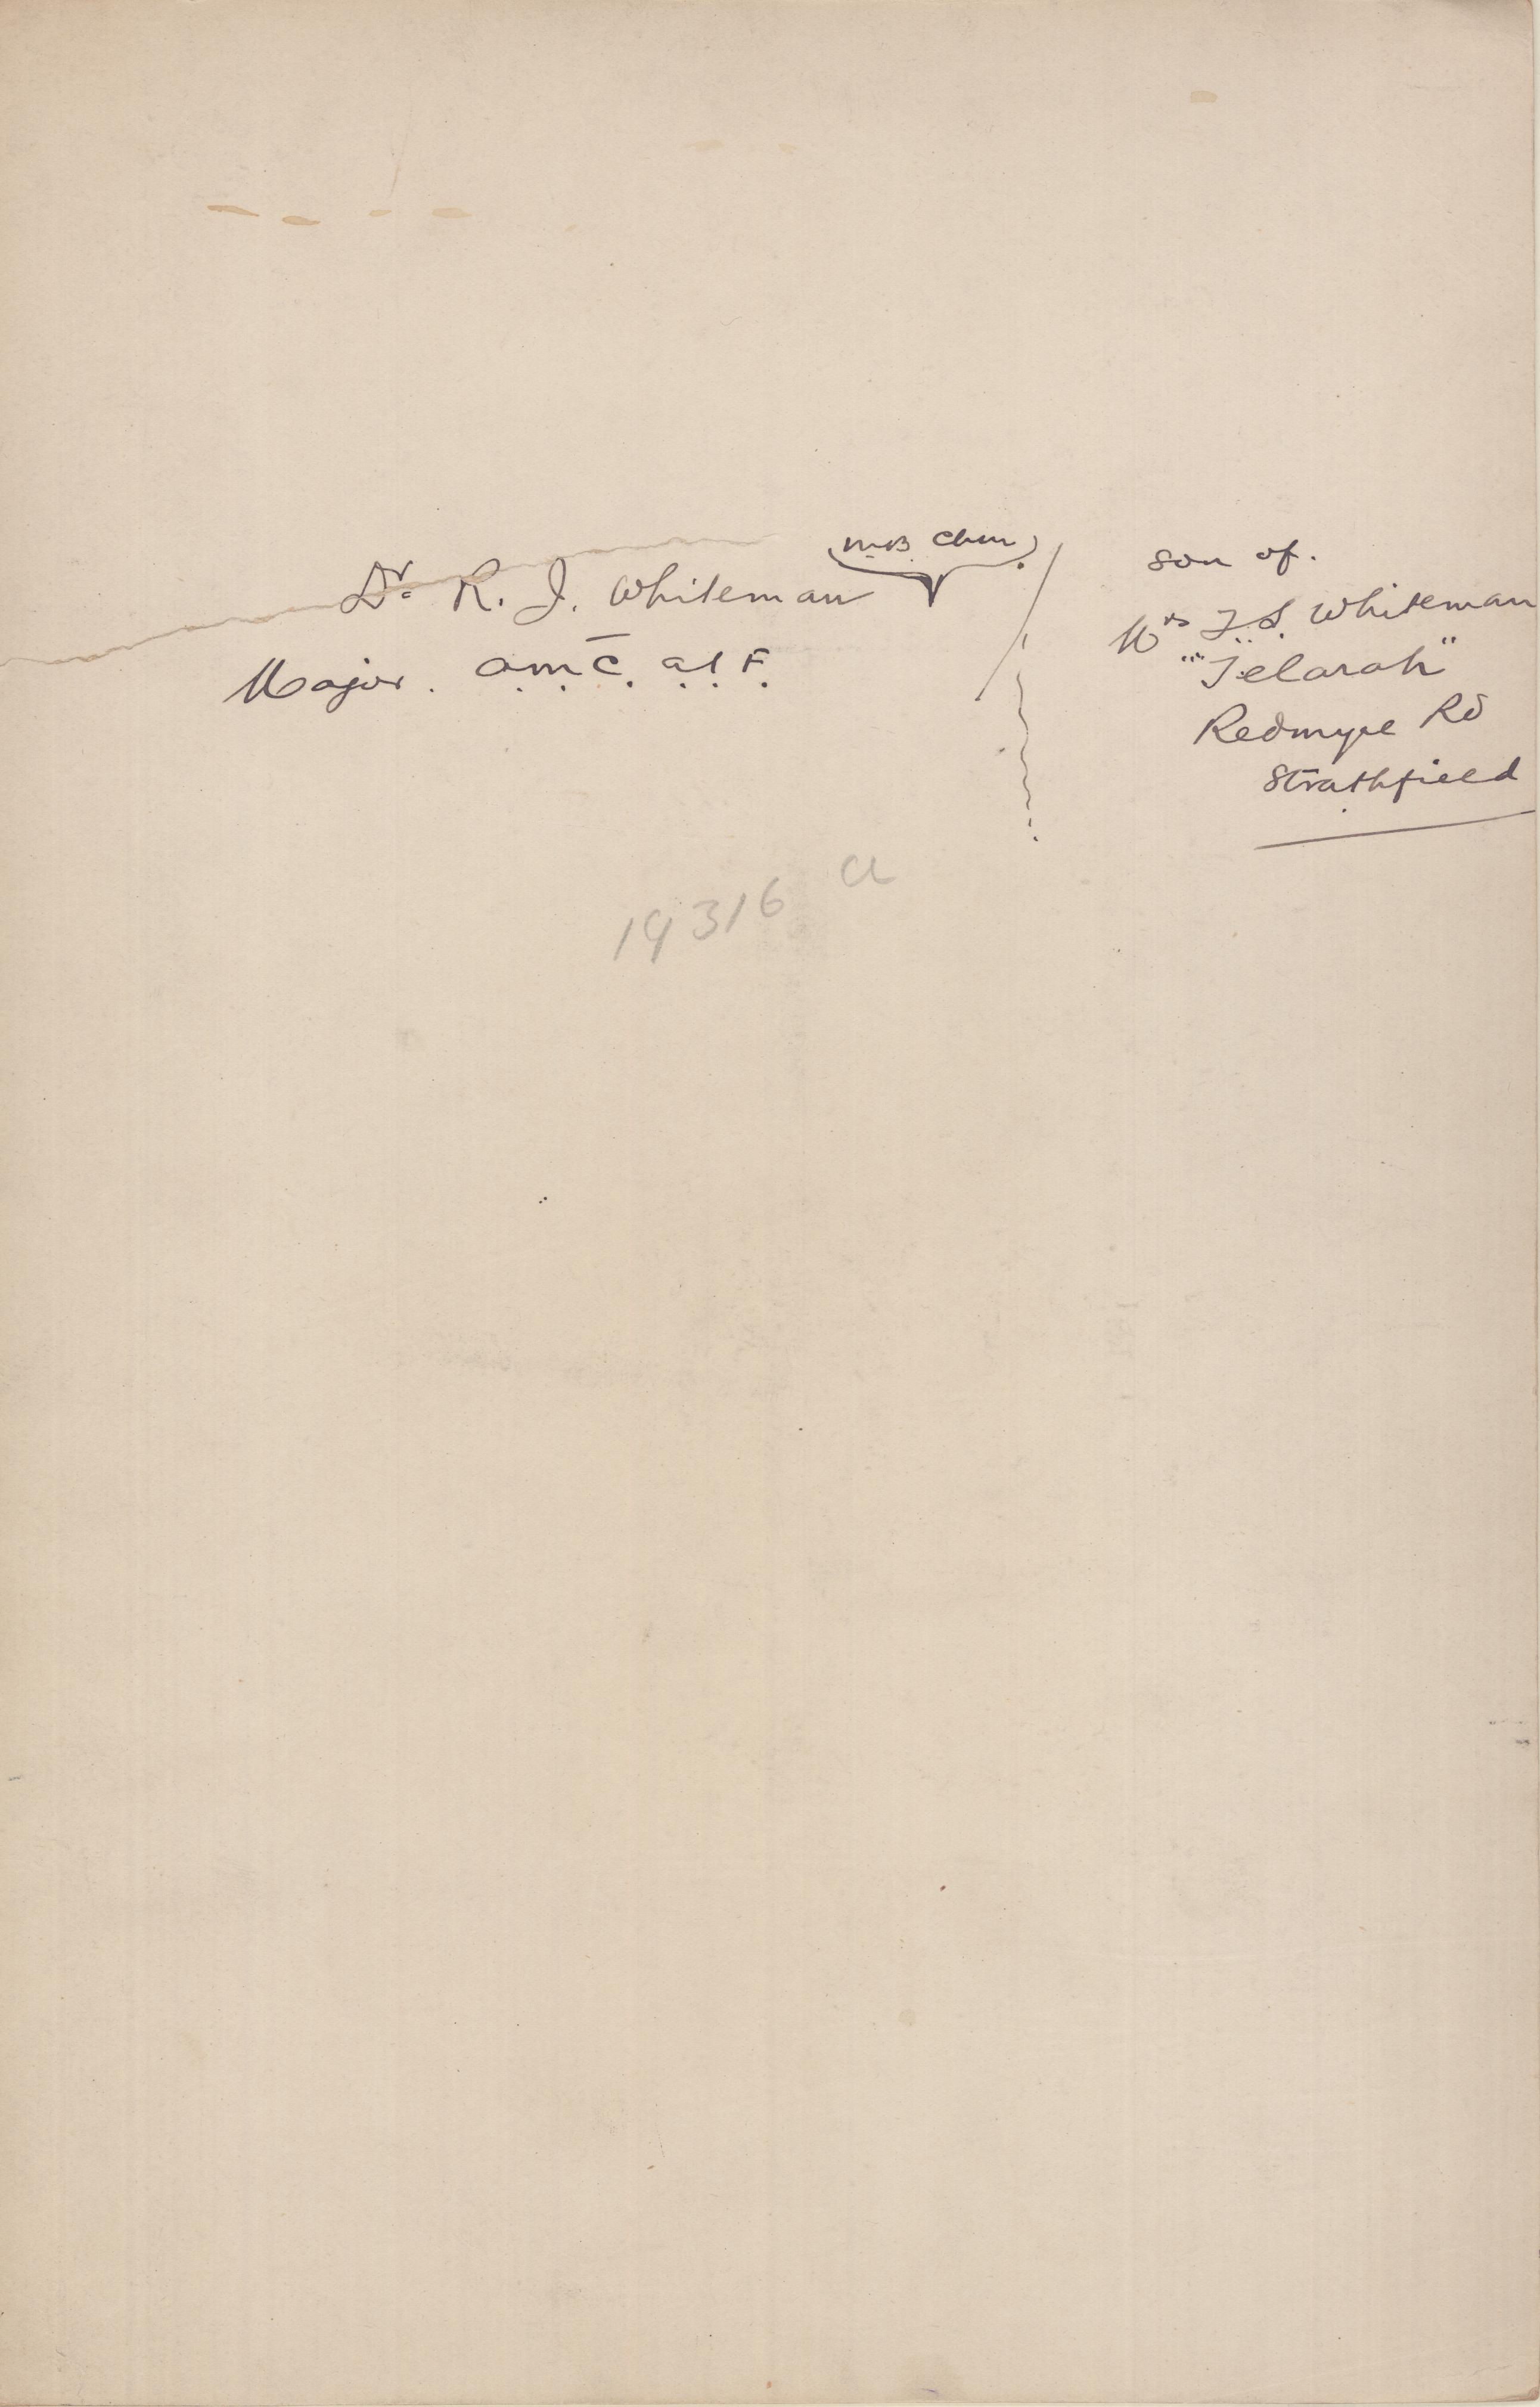 (M.B. ChM.)
Dr. R. J. Whiteman
Major. A.M.C. A.I.F.
son of.
Mrs J.S. Whiteman
"Telarah"
Redmyre Rd
Strathfield
19316 a